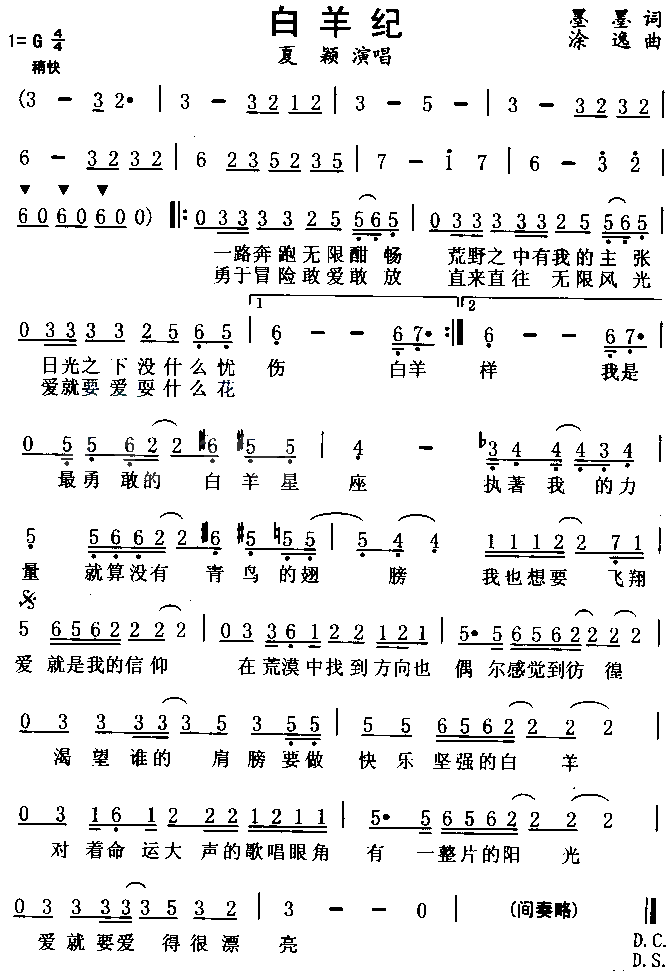 白羊纪
墨 墨 词
1=G 4/4
涂 逸 曲
夏 颖 演唱
稍快
(3 - 3 2• | 3 - 3 2 1 2 | 3 - 5 - | 3 - 3 2 3 2 |
6 - 3 2 3 2 | 6 2 3 5 2 3 5 | 7 - 1 7 | 6 - 3• 2 |
6 0 6 0 6 0 0) ‖: 0 3 3 3 3 2 5 5 6 5 | 0 3 3 3 3 3 2 5 5 6 5 |
一路奔跑无限酣 畅 荒野之中有我的主 张
勇于冒险敢爱敢 放 直来直往 无限风 光
0 3 3 3 3 2 5 6 5 | 1 6 - - 6 7• :‖ 2 6 - - 6 7• |
日光之 下没什么忧 伤 白羊 样 我是
爱就要 爱耍什么花
0 5 5 6 2 2 #6 #5 5 | 4 - b3 4 4 4 3 4 |
最勇 敢的 白羊星 座 执著我 的力
量 就算没有 青鸟的翅 膀 我也想要 飞翔
5 6 5 6 2 2 2 2 | 0 3 3 6 1 2 2 1 2 1 | 5• 5 6 5 6 2 2 2 2 |
爱 就是我的信仰 在荒漠中找到方向也 偶尔感觉到彷 徨
0 3 3 3 3 3 5 3 5 5 | 5 5 6 5 6 2 2 2 2 |
渴 望 谁的 肩 膀要做 快 乐 坚强的白 羊
0 3 1 6 1 2 2 2 2 1 2 1 1 | 5• 5 5 6 5 6 2 2 2 2 |
对 着命 运大 声的歌唱眼角 有 一整片的阳 光
0 3 3 3 3 3 3 5 3 2 | 3 - - 0 | (间奏略) ‖
爱就要爱 得很漂 亮
D.C.
D.S.